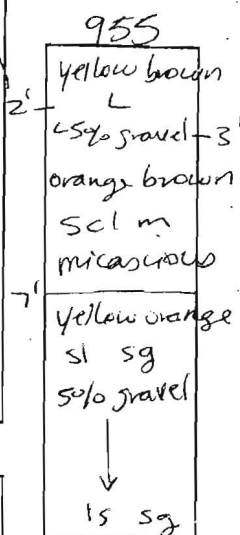 955
yellow brown
2' L
<5% gravel 3'
orange brown
scl m
micascious
7'
yellow orange
sl sg
50% gravel
ls sg